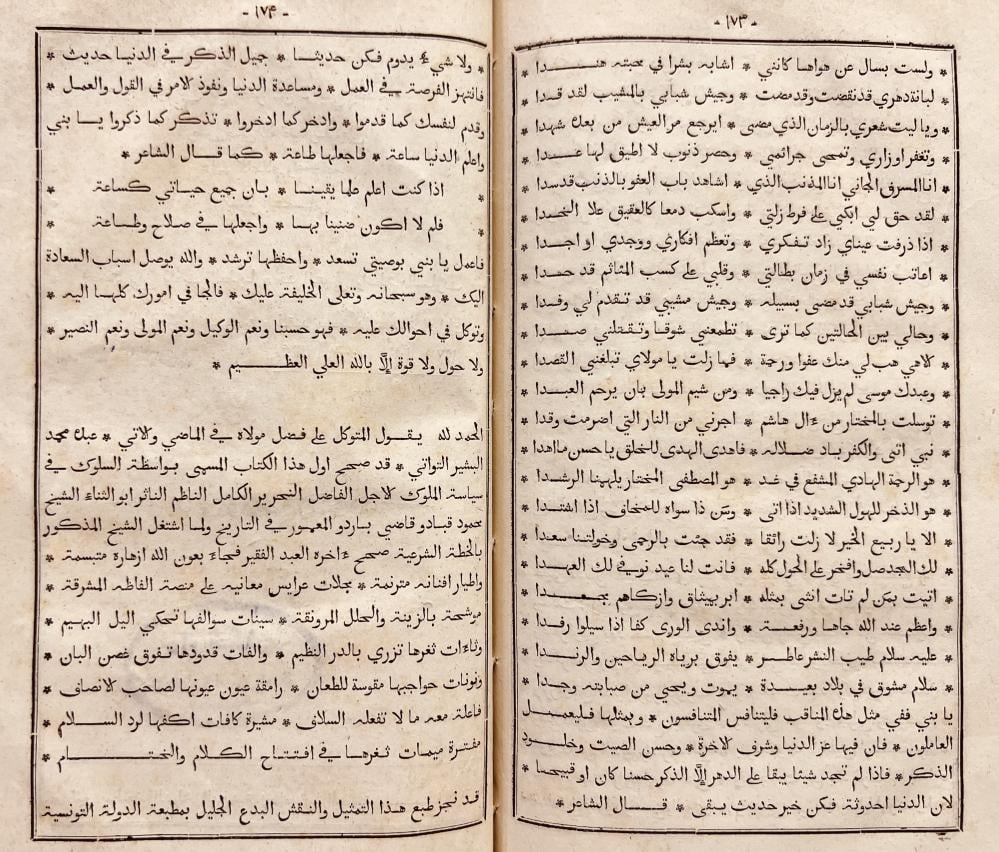 - ١٧٣ -
* ولست بسال عن هواها كانني * اشابه بشرا في محبته هنــــدا
* لبانة دهري قد نقضت وقد مضت * وجيش شبابي بالمشيب لقد قــدا
* ويا ليت شعري بالزمان الذي مضى * ايرجع مر العيش من بعك شهدا
* وتغفر اوزاري وتمحى جرائمي * وحصر ذنوب لا اطيق لها عــــدا
* انا المسرف الجاني انا المذنب الذي * اشاهد باب العفو بالذنب قد سدا
* لقد حق لي ابكي على فرط زلتي * واسكب دمعا كالعقيق علا الخدا
* اذا ذرفت عيناي زاد تفكري * وتعظم افكاري ووجدي او اجـــدا
* اعاتب نفسي في زمان بطالتي * وقلبي على كسب المئاثم قد حمــدا
* وجيش شبابي قد مضى بسبيله * وجيش مشيبي قد تقدم لي وفــدا
* وحالي بين الحالتين كما ترى * تطمعني شوقا وتقتلني صـــدا
* الاهي هب لي منك عفوا ورحمة * فما زلت يا مولاي تبلغني القصدا
* وعبدك موسى لم يزل فيك راجيا * ومن شيم المولى بان يرحم العبــدا
* توسلت بالمختار من ءال هاشم * اجرني من النار التي اضرمت وقدا
* نبي اتى والكفر باد ضــلاله * فاهدى الهدى للخلق يا حسن ما اهدا
* هو الرحمة الهادي المشفع في غـد * هو المصطفى المختار يلهمنا الرشـدا
* هو الذخر للهول الشديد اذا اتى * ومن ذا سواه للمخاف اذا اشتـدا
* الا يا ربيع الخير لا زلت رائقا * فقد جئت بالرحمى وخولتنا سعدا
* لك المجد صل وافخر على الحول كله * فانت لنا عيد نوفي لك العهــدا
* اتيت بمن لم تات انثى بمثله * ابر بميثاق وازكاهم مجمــــدا
* واعظم عند الله جاها ورفعــة * واندى الورى كفا اذا سيلوا رفـدا
* عليه سلام طيب النشر عاطــر * يفوق برياه الرياحين والرنــدا
* سلام مشوق في بلاد بعيــدة * يموت ويحيى من صبابته وجـدا
يا بني ففي مثل هذه المناقب فليتنافس المتنافسون * وبمثلها فليعمــل
العاملون * فان فيها عز الدنيا وشرف الاخرة * وحسن الصيت وخلــود
الذكر * فاذا لم تجد شيئا يبقا على الدهر إلّا الذكر حسنا كان او قبيحـا *
لان الدنيا احدوثة فكن خير حديث يبقى * قــــال الشاعر *
- ١٧٤ -
* ولا شيء يدوم فكن حديثــا * جميل الذكر في الدنيا حديث *
فانتهز الفرصة في العمل * ومساعدة الدنيا ونفوذ الامر في القول والعمــل *
وقدم لنفسك كما قدموا * وادخر كما ادخروا * تذكر كما ذكروا يــا بني
واعلم الدنيا ساعة * فاجعلها طاعة * كما قــال الشاعر *
اذا كنت اعلم علما يقينــا * بان جميع حياتي كساعة *
* فلم لا اكون ضنينا بهــا * واجعلها في صلاح وطــاعة *
فاعمل يا بني بوصيتي تسعد * واحفظها ترشد * والله يوصل اسباب السعادة
اليك * وهو سبحانه وتعلى الخليفة عليك * فالجا في امورك كلهــا اليه *
وتوكل في احوالك عليه * فهو حسبنا ونعم الوكيل ونعم المولى ونعم النصير *
ولا حول ولا قوة إلّا بالله العلي العظــــــيم *
الحمد لله يقــول المتوكل على فضل مولاه في الماضي والاتي * عبك محمد
البشير التواتي * قد صحح اول هذا الكتاب المسمى بواسطة السلوك في
سياسة الملوك الاجل الفاضل النحرير الكامل الناظم الناثر ابو الثناء الشيخ
محمود قبادو قاضي باردو المعمور في التاريخ ولما اشتغل الشيخ المذكور
بالخطة الشرعية صحح ءاخره العبد الفقير فجاء بعون الله ازهاره متبسمة *
واطيار افنانه مترنمة * بجلات عرايس معانيه على منصة الفاظه المشرقة *
موشحة بالزينة والحلل المرونقة * سينات سوالفها تحكي اليل البهيــم *
وثاءات ثغرها تزري بالدر النظيم * والفات قدودها تفوق غصن البان *
ونونات حواجبها مقوسة للطعان * رامقة عيون عيونها لصاحب الانصاف *
فاعلة معه ما لا تفعله السلاف * مشيرة كافات اكفها لرد الســــلام *
مفتـرة ميمات ثغرهــا في افتتاح الكـــلام والختـــــام *
قــد نجز طبع هــذا التمثيل والنقش البدع الجليل بمطبعة الدولة التونسية